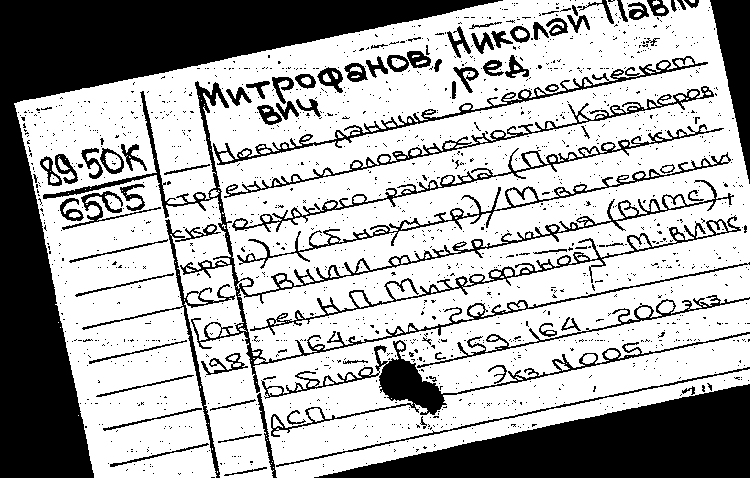 Митрофанов, Николай Павло
вич , ред.
89-50К
6505
Новые данные о геологическом
строении и оловоносности Кавалеров
ского рудного района (Приморский
край) : (Сб. науч. тр.) / М-во геологии
СССР, ВНИИ минер. сырья (ВИМС) ;
[Отв. ред. Н. П. Митрофанов]. - М : ВИМС,
1988. - 164 с. : ил. ; 20 см.
Библиогр. : с. 159-164. - 200 экз.
ДСП. Экз. N 005